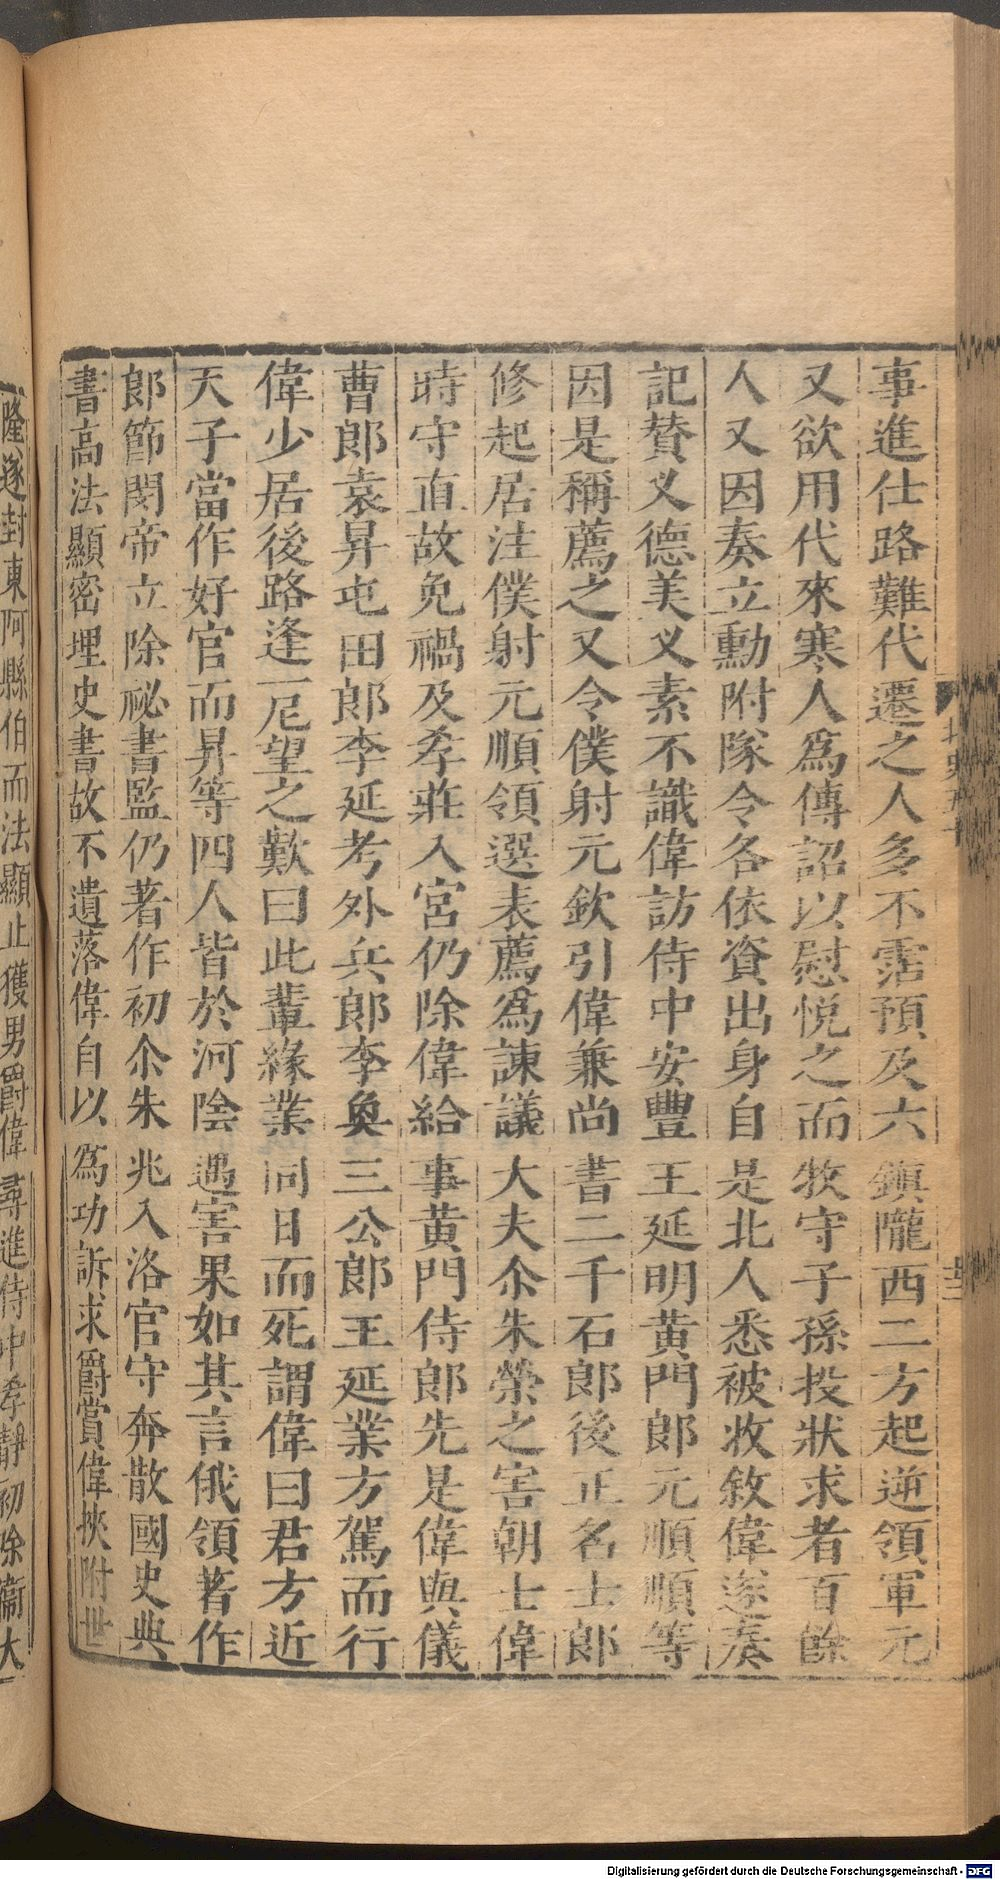 事進仕路難代遷之人多不霑預及六鎮隴西二方起逆領軍元
又欲用代來寒人爲傳詔以慰悅之而牧守子孫投狀求者百餘
人又因奏立勳附隊令各依資出身自是北人悉被收敘偉遂奏
記贊义德美义素不識偉訪侍中安豐王延明黃門郎元順順等
因是稱薦之义令僕射元欽引偉兼尚書二千石郎後正名士郎
修起居注僕射元順領選表薦爲諫議大夫尒朱榮之害朝士偉
時守直故免禍及孝莊入宮仍除偉給事黃門侍郎先是偉與儀
曹郎袁昇屯田郎李延考外兵郎李奐三公郎王延業方駕而行
偉少居後路逢一尼望之歎曰此輩緣業同日而死謂偉曰君方近
天子當作好官而昇等四人皆於河陰遇害果如其言俄領著作
郎節閔帝立除祕書監仍著作初尒朱兆入洛官守奔散國史典
書高法顯密埋史書故不遺落偉自以爲功訴求爵賞偉挾附世
隆遂封東阿縣伯而法顯止獲男爵偉尋進侍中孝靜初除衞大
Digitalisierung gefördert durch die Deutsche Forschungsgemeinschaft - DFG